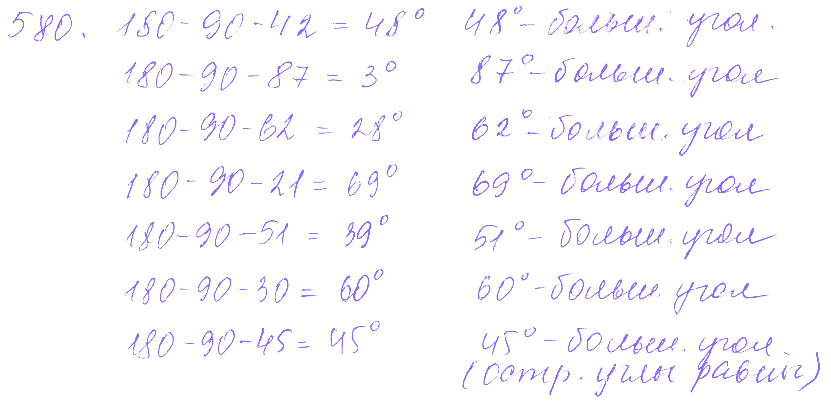 580. 180-90-42 = 48° 48° - больш. угол.
180-90-87 = 3° 87° - больш. угол
180-90-62 = 28° 62° - больш. угол
180-90-21 = 69° 69° - больш. угол
180-90-51 = 39° 51° - больш. угол
180-90-30 = 60° 60° - больш. угол
180-90-45 = 45° 45° - больш. угол.
(остр. углы равны)